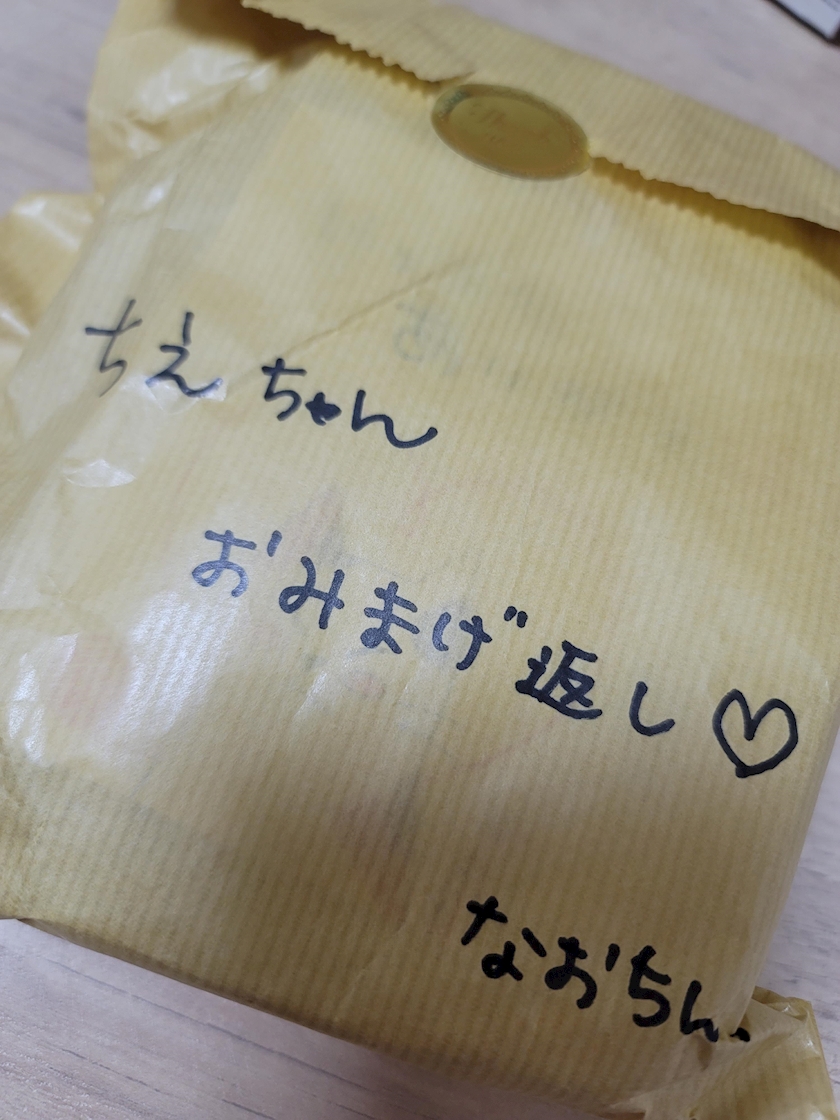 ちえちゃん
おみまげ返し♡
なおちん.